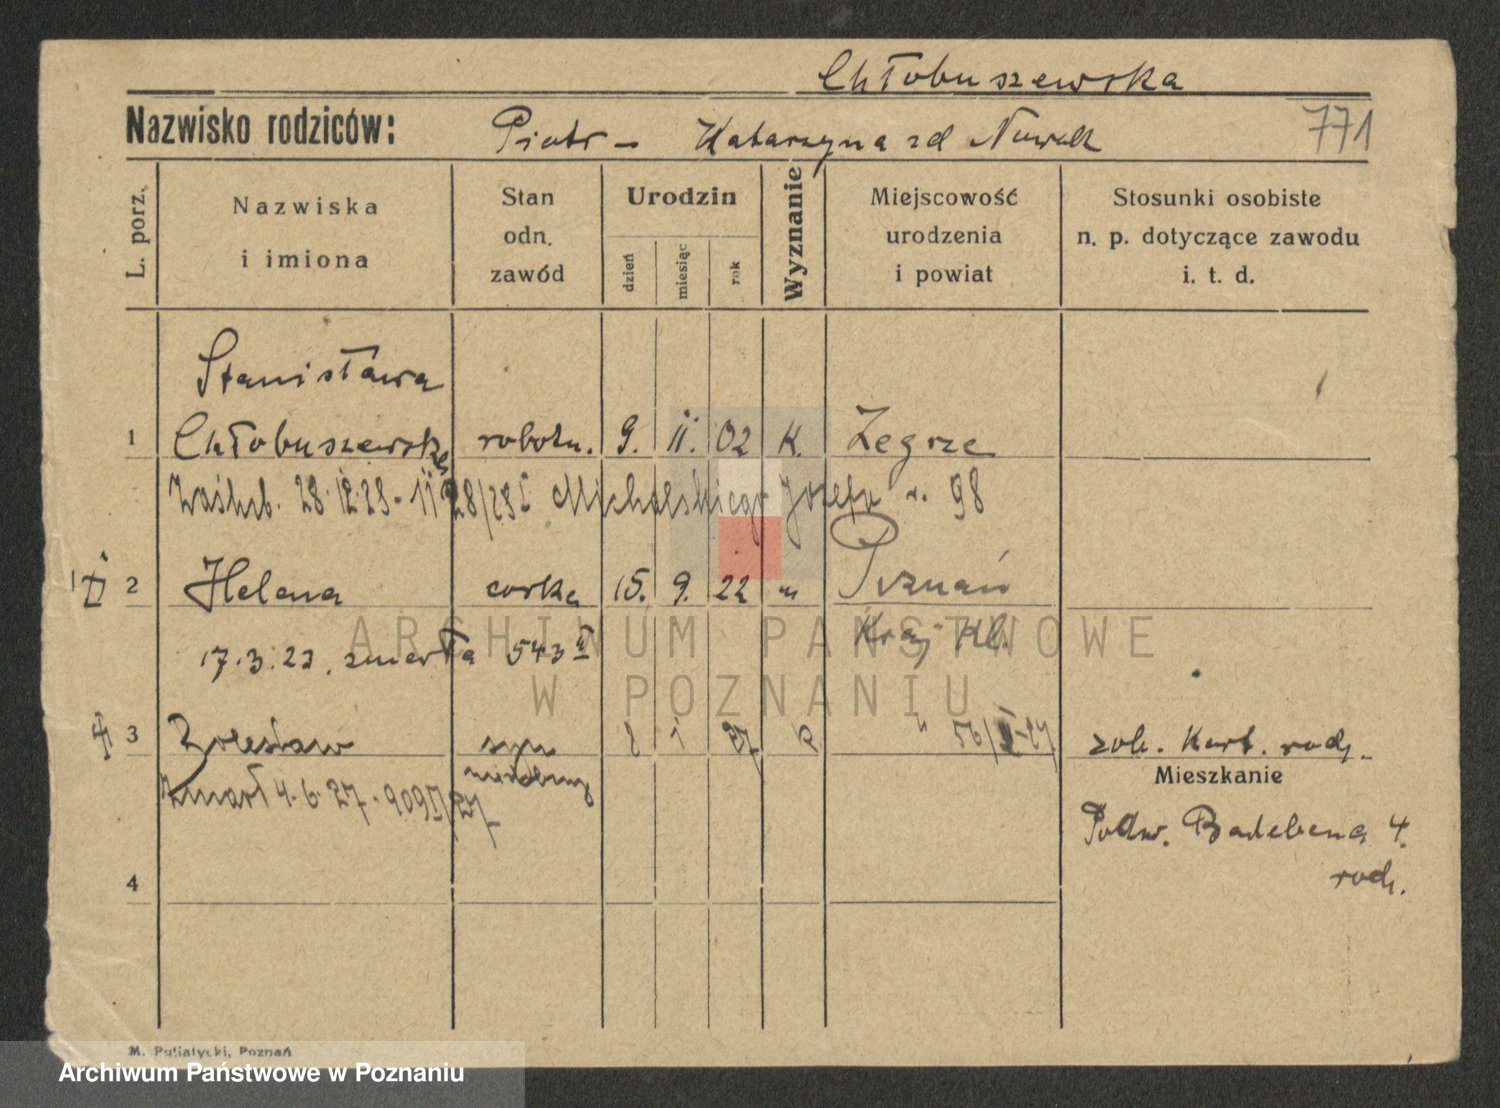 Chłobuszewska
Nazwisko rodziców: Piotr – Katarzyna zd Nowak 771
L. porz.
Nazwiska i imiona
Stan odn. zawód
Urodzin
dzień miesiąc rok
Wyznanie
Miejscowość urodzenia i powiat
Stosunki osobiste n. p. dotyczące zawodu i. t. d.
Stanisława
1 Chłobuszewska robotn. 9. II. 02 K. Żegrze
Zaślub. 28.12.23 - Michalskiego Józefa 98
2 Helena córka 15. 9. 22 " Poznań
17.3.23. zmarła 543
3 Bolesław syn 8 1 27
zob. Kart. rodz.
Zmarł 4.6.27.
Mieszkanie
Podw. Badebena 4.
rodz.
4
M. Putiatycki, Poznań
ARCHIWUM PAŃSTWOWE
W POZNANIU
Archiwum Państwowe w Poznaniu